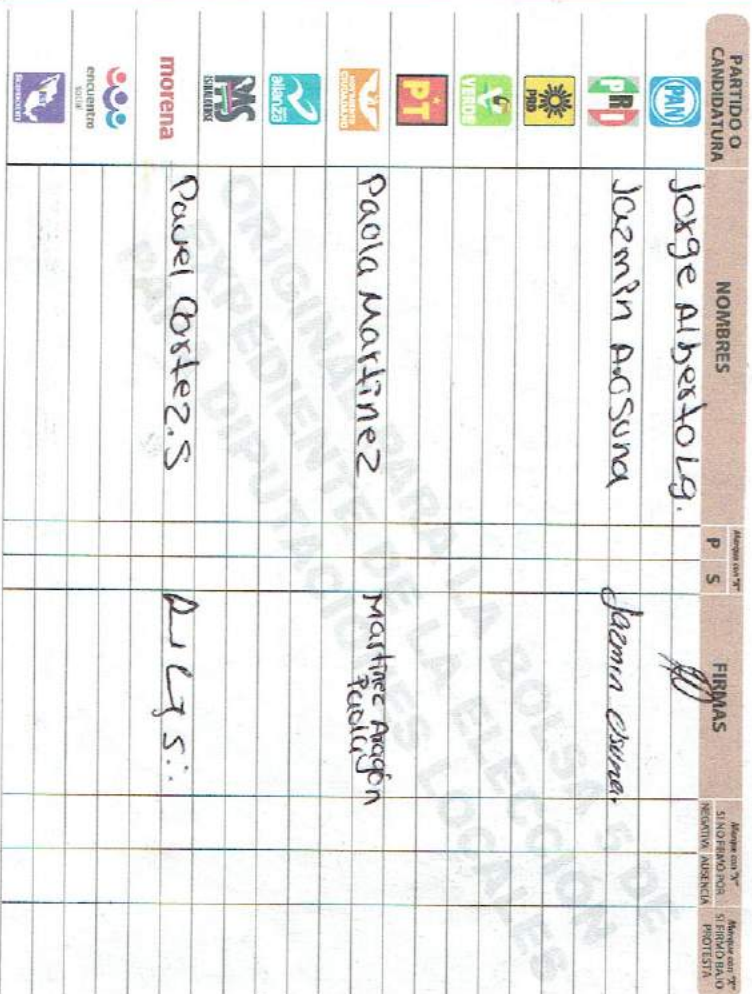 PARTIDO O CANDIDATURA
NOMBRES
Marque con "X"
P S
FIRMAS
Marque con "X"
SI NO FIRMÓ POR
NEGATIVA AUSENCIA
Marque con "X"
SI FIRMÓ BAJO PROTESTA
PAN Jorge Alberto L g.
PRI Jazmin Osuna Jazmin Osuna
PRD
VERDE
PT
MOVIMIENTO CIUDADANO Paola Martinez Martinez Aragón Paola
alianza
PAS
SINALOENSE
morena Pavel Cortez.S
encuentro social
ORIGINAL PARA LA BOLSA 5 DE
EXPEDIENTE DE LA ELECCIÓN
PARA DIPUTACIONES LOCALES